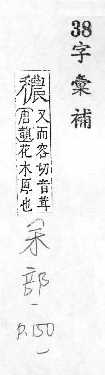 38字彙補
穠 又而容切音茸
唐韻花木厚也
(禾部-
p.150